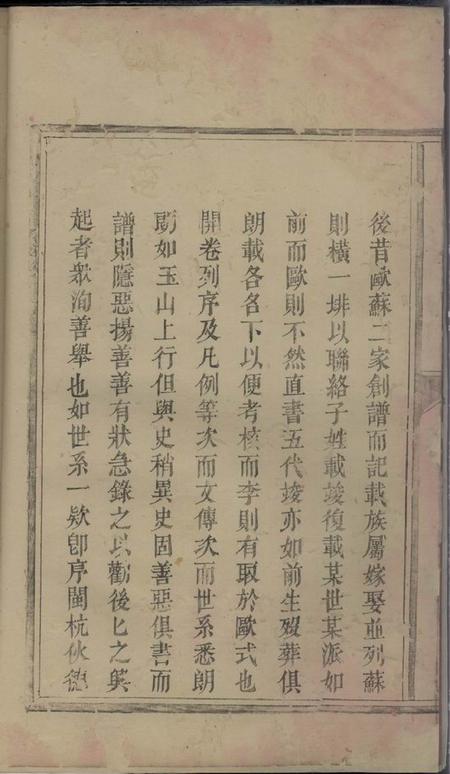 後昔歐蘇二家創譜而記載族屬嫁娶並列蘇
則橫一排以聯絡子姓載竣復載某世某派如
前而歐則不然直書五代竣亦如前生歿葬俱
朗載各名下以便考核而李則有取於歐式也
開卷列序及凡例等次而文傳次而世系悉朗
朗如玉山上行但與史稍異史固善惡俱書而
譜則隱惡揚善善有狀急錄之以勸後匕之興
起者衆洵善舉也如世系一欵卽序閩杭伙德